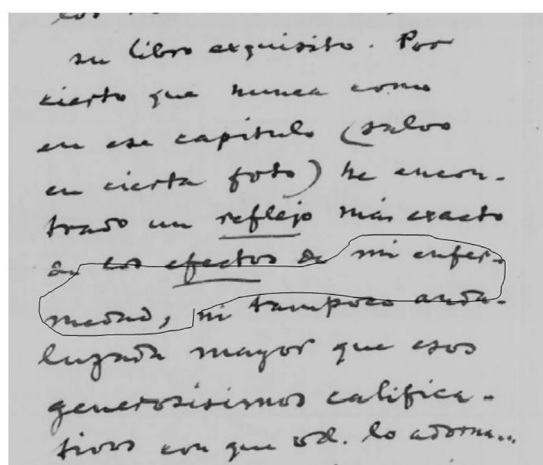 su libro exquisito. Por
cierto que nunca como
en ese capítulo (salvo
en cierta foto) he encon-
trado un reflejo más exacto
de los efectos de mi enfer-
medad, ni tampoco anda-
luzada mayor que esos
generosísimos califica-
tivos con que vd. lo adorna...